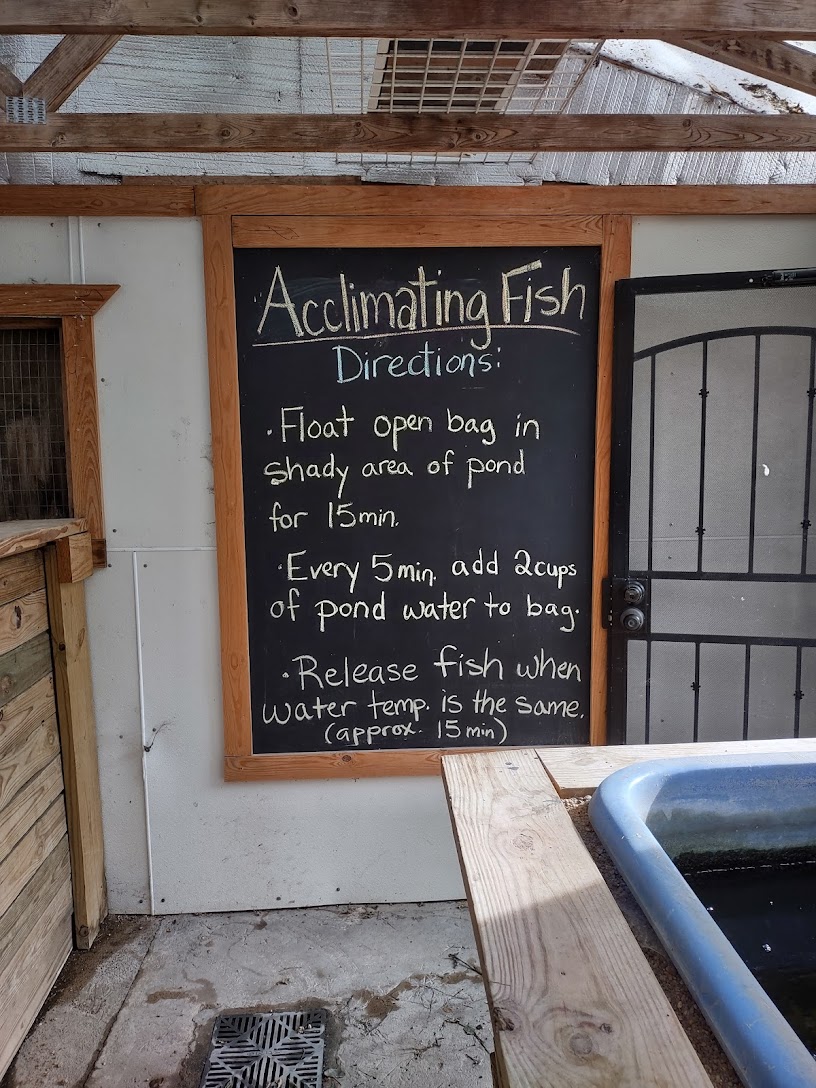 Acclimating Fish
Directions:
· Float open bag in
shady area of pond
for 15min.
· Every 5min. add 2cups
of pond water to bag.
· Release fish when
water temp. is the same.
(approx. 15min)